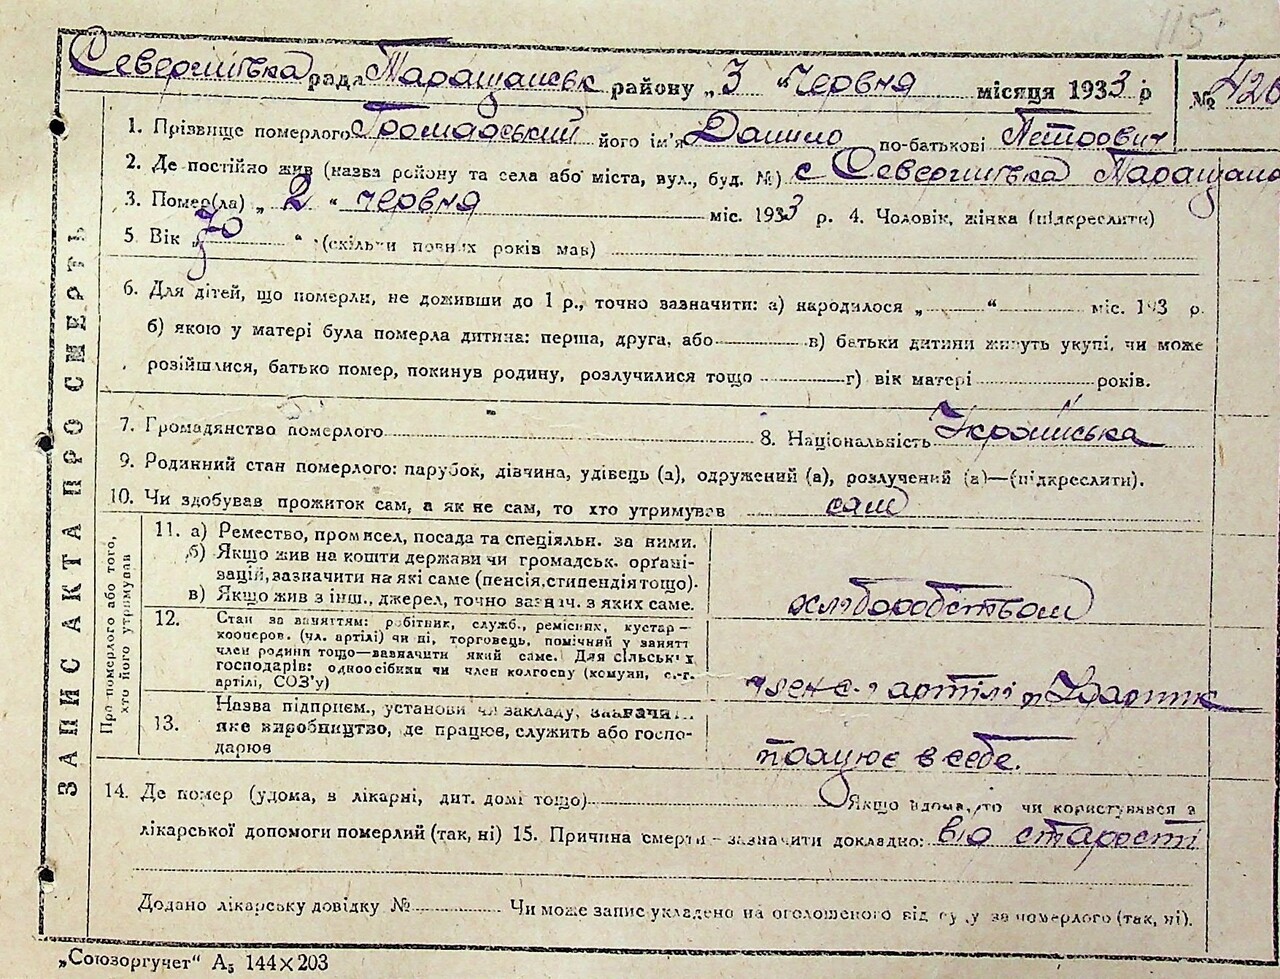 115
Северинівка рада Таращанськ району „3 “ Червня місяця 1933 р № 426
ЗАПИС АКТА ПРО СМЕРТЬ
1. Прізвище померлого Громадський його ім'я Данило по-батькові Петрович
2. Де постійно жив (назва району та села або міста, вул., буд. №) с Северинівка Таращанс
3. Помер(ла) „ 2 “ червня міс. 1933 р. 4. Чоловік, жінка (підкреслити)
5. Вік „ 70 “ (скільки повних років мав)
6. Для дітей, що померли, не доживши до 1 р., точно зазначити: а) народилося „ “ міс. 193 р.
б) якою у матері була померла дитина: перша, друга, або в) батьки дитини живуть укупі, чи може
розійшлися, батько помер, покинув родину, розлучилися тощо г) вік матері років.
7. Громадянство померлого 8. Національність Українська
9. Родинний стан померлого: парубок, дівчина, удівець (а), одружений (а), розлучений (а)—(підкреслити).
10. Чи здобував прожиток сам, а як не сам, то хто утримував сам
Про померлого або того,
хто його утримував
11. а) Ремество, промисел, посада та спеціяльн. за ними.
б) Якщо жив на кошти держави чи громадськ. орґані-
зацій, зазначити на які саме (пенсія, стипендія тощо).
в) Якщо жив з інш., джерел, точно зазнач. з яких саме.
хліборобством
12. Стан за заняттям: робітник, служб., ремісник, кустар—
кооперов. (чл. артілі) чи ні, торговець, помічний у занятт
член родини тощо—зазначити який саме. Для сільськ х
господарів: одноосібник чи член колгоспу (комуни, с.-г.
артілі, СОЗ'у)
член с. г артілі
13. Назва підприєм., установи чи закладу, зазначити
яке виробництво, де працює, служить або госпо-
дарює
працює в себе.
14. Де помер (удома, в лікарні, дит. домі тощо) Якщо вдома, то чи користувався з
лікарської допомоги померлий (так, ні) 15. Причина смерти - зазначити докладно: від старості
Додано лікарську довідку № Чи може запис укладено на оголошеного від суду за померлого (так, ні).
„Союзоргучет“ А₅ 144×203